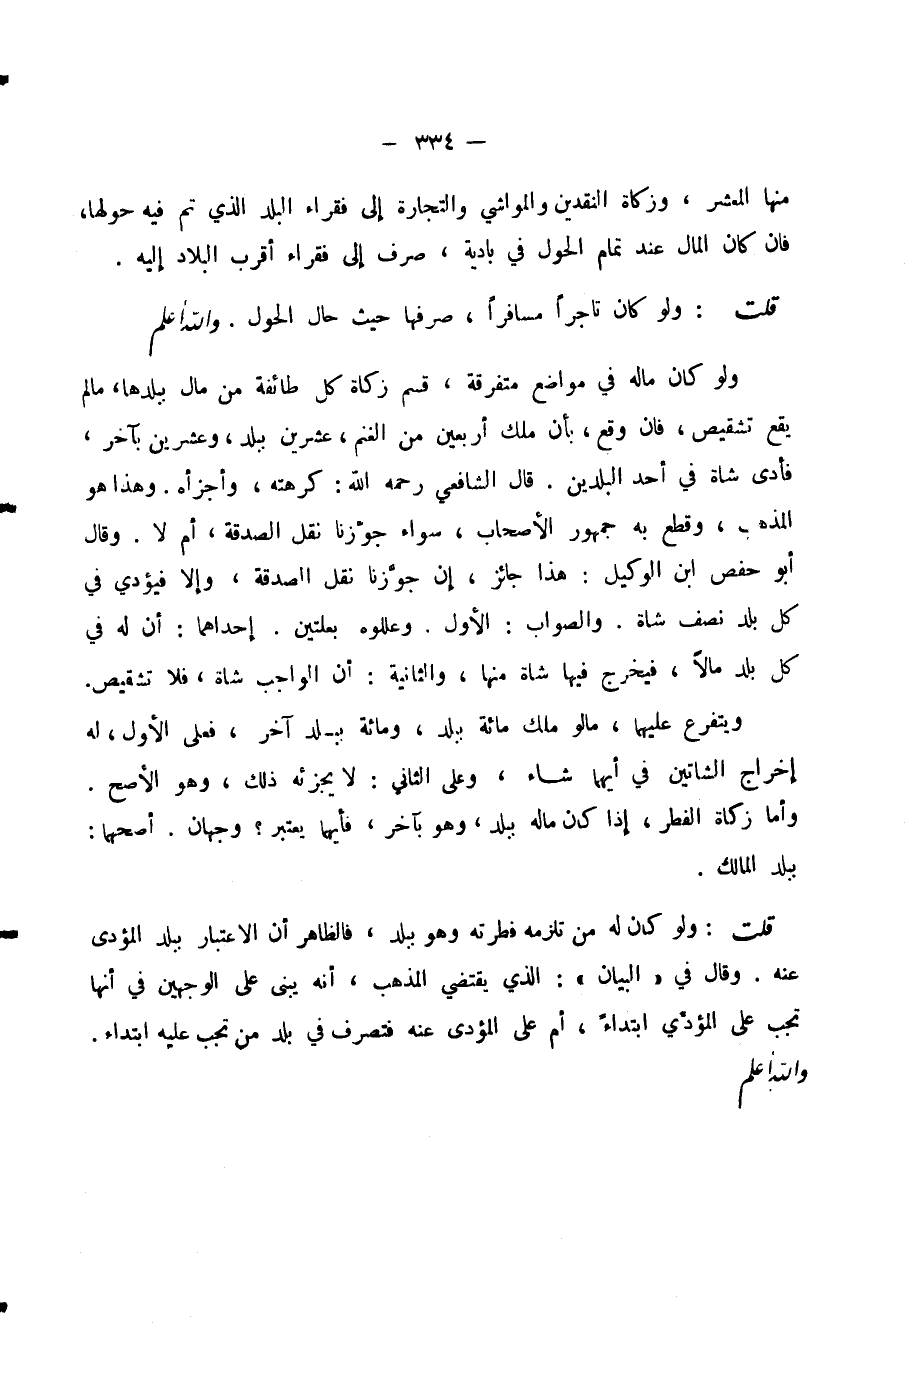 — ٣٣٤ —
منها المعشر ، وزكاة النقدين والمواشي والتجارة إلى فقراء البلد الذي تم فيه حولها،
فان كان المال عند تمام الحول في بادية ، صرف إلى فقراء أقرب البلاد إليه .
قلت : ولو كان تاجراً مسافراً ، صرفها حيث حال الحول . والله أعلم
ولو كان ماله في مواضع متفرقة ، قسم زكاة كل طائفة من مال ببلدها، مالم
يقع تشقيص، فان وقع، بأن ملك أربعين من الغنم، عشرين ببلد، وعشرين بآخر ،
فأدى شاة في أحد البلدين . قال الشافعي رحمه الله : كرهته ، وأجزأه . وهذا هو
المذهب ، وقطع به جمهور الأصحاب ، سواء جوّزنا نقل الصدقة ، أم لا . وقال
أبو حفص ابن الوكيل : هذا جائز ، إن جوّزنا نقل الصدقة ، وإلا فيؤدي في
كل بلد نصف شاة . والصواب : الأول . وعللوه بعلتين . إحداهما : أن له في
كل بلد مالاً ، فيخرج فيها شاة منها ، والثانية : أن الواجب شاة ، فلا تشقيص.
ويتفرع عليها ، مالو ملك مائة ببلد ، ومائة ببـلد آخر ، فعلى الأول ، له
إخراج الشاتين في أيها شـاء ، وعلى الثاني : لا يجزئه ذلك ، وهو الأصح .
وأما زكاة الفطر ، إذا كان ماله ببلد ، وهو بآخر ، فأيها يعتبر ؟ وجهان . أصحها :
ببلد المالك .
قلت : ولو كان له من تلزمه فطرته وهو ببلد ، فالظاهر أن الاعتبار ببلد المؤدى
عنه . وقال في « البيان » : الذي يقتضي المذهب ، أنه يبنى على الوجهين في أنها
تجب على المؤدّي ابتداءً ، أم على المؤدى عنه فتصرف في بلد من تجب عليه ابتداء .
والله أعلم